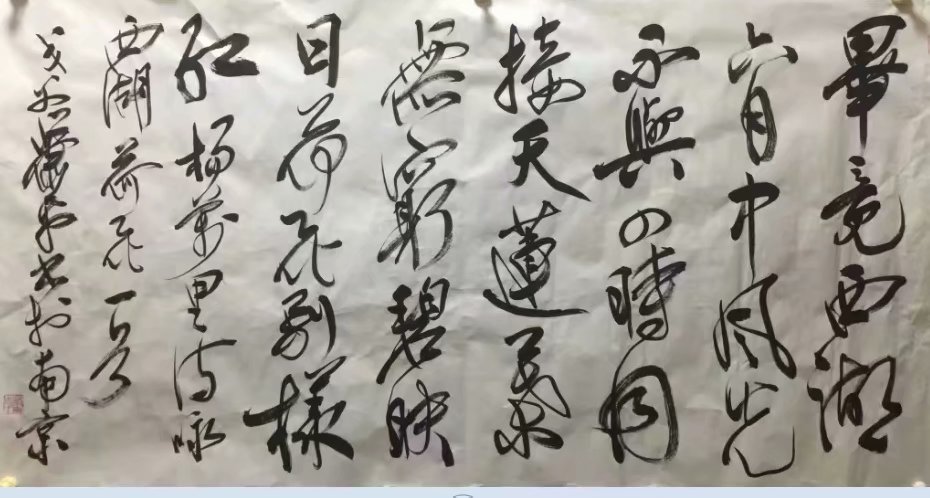 畢竟西湖
六月中风光
不與四時同
接天蓮葉
無窮碧映
日荷花别樣
紅 楊萬里诗咏
西湖荷花一首
书於南京